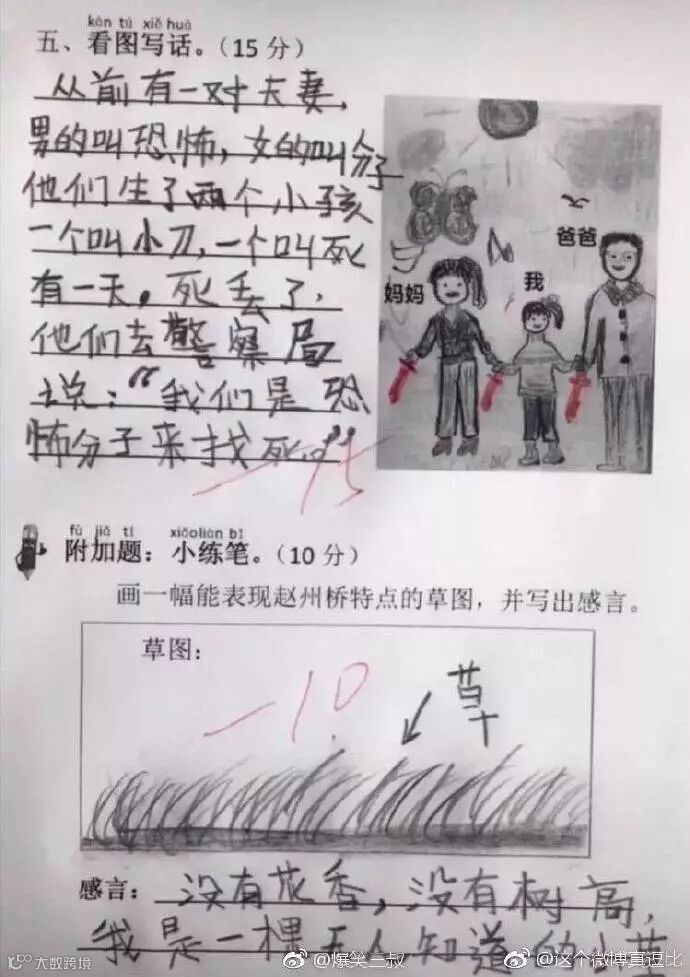 kàn tú xiě huà
五、看图写话。(15 分)
从前有一对夫妻，
男的叫恐怖，女的叫分子
他们生了两个小孩
一个叫小刀，一个叫死
有一天，死丢了，
他们去警察局
说：“我们是恐
怖分子来找死。”
-15
妈妈
我
爸爸
fù jiā tí xiǎoliàn bǐ
附加题：小练笔。(10 分)
画一幅能表现赵州桥特点的草图，并写出感言。
草图：
-10
草
感言：没有花香，没有树高，
我是一棵无人知道的小草
大数跨境
@爆笑三叔
@这个微博真逗比